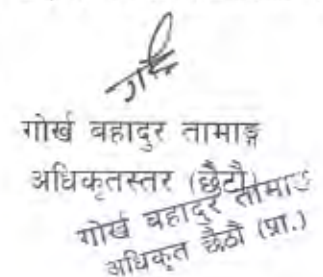 गोर्ख बहादुर तामाङ्ग
अधिकृतस्तर (छैटौ)
गोर्ख बहादुर तामाङ
अधिकृत छैठौ (प्रा.)